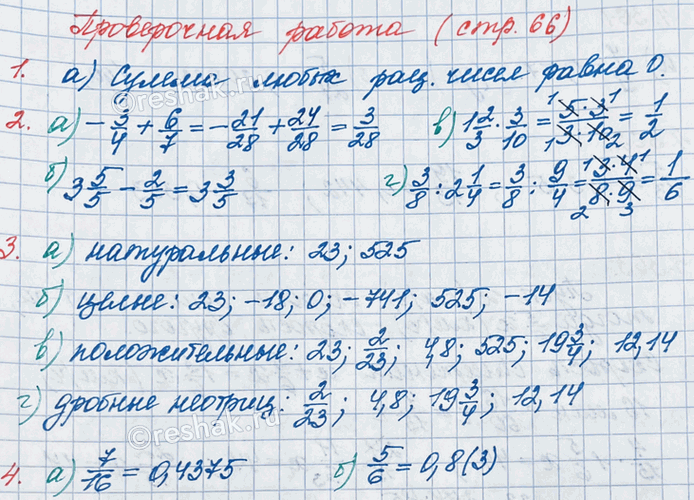 Проверочная работа (стр. 66)
1. а) Сумма любых рац. чисел равна 0.
2. а) -3/4 + 6/7 = -21/28 + 24/28 = 3/28 в) 1 2/3 · 3/10 = 5·3/3·10 = 1/2
б) 3 5/5 - 2/5 = 3 3/5 г) 3/8 : 2 1/4 = 3/8 : 9/4 = 3·4/8·9 = 1/6
3. а) натуральные: 23; 525
б) целые: 23; -18; 0; -741; 525; -14
в) положительные: 23; 2/23; 4,8; 525; 19 3/4; 12,14
г) дробные неотриц: 2/23; 4,8; 19 3/4; 12,14
4. а) 7/16 = 0,4375 б) 5/6 = 0,8(3)
©reshak.ru
©reshak.ru